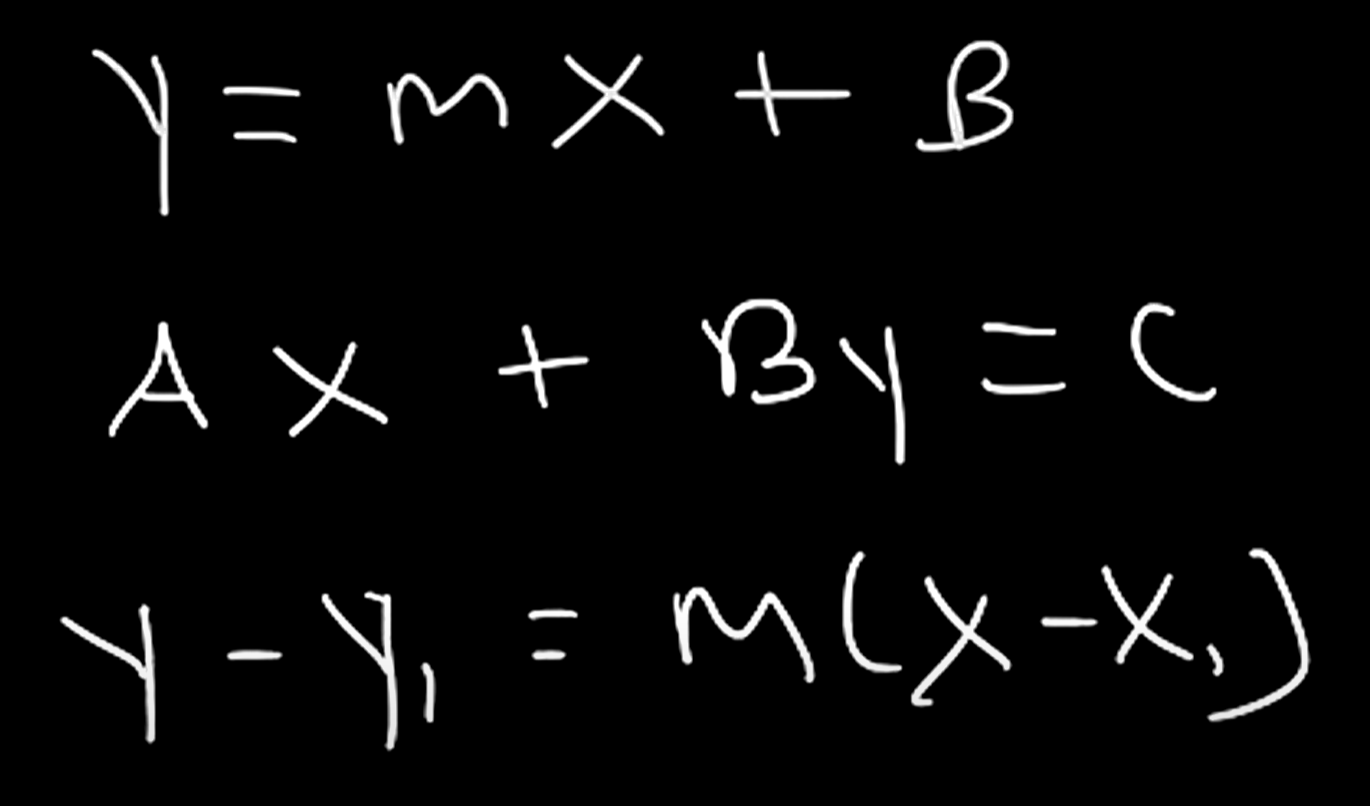 y = mx + B
Ax + By = C
y - y₁ = m(x - x₁)